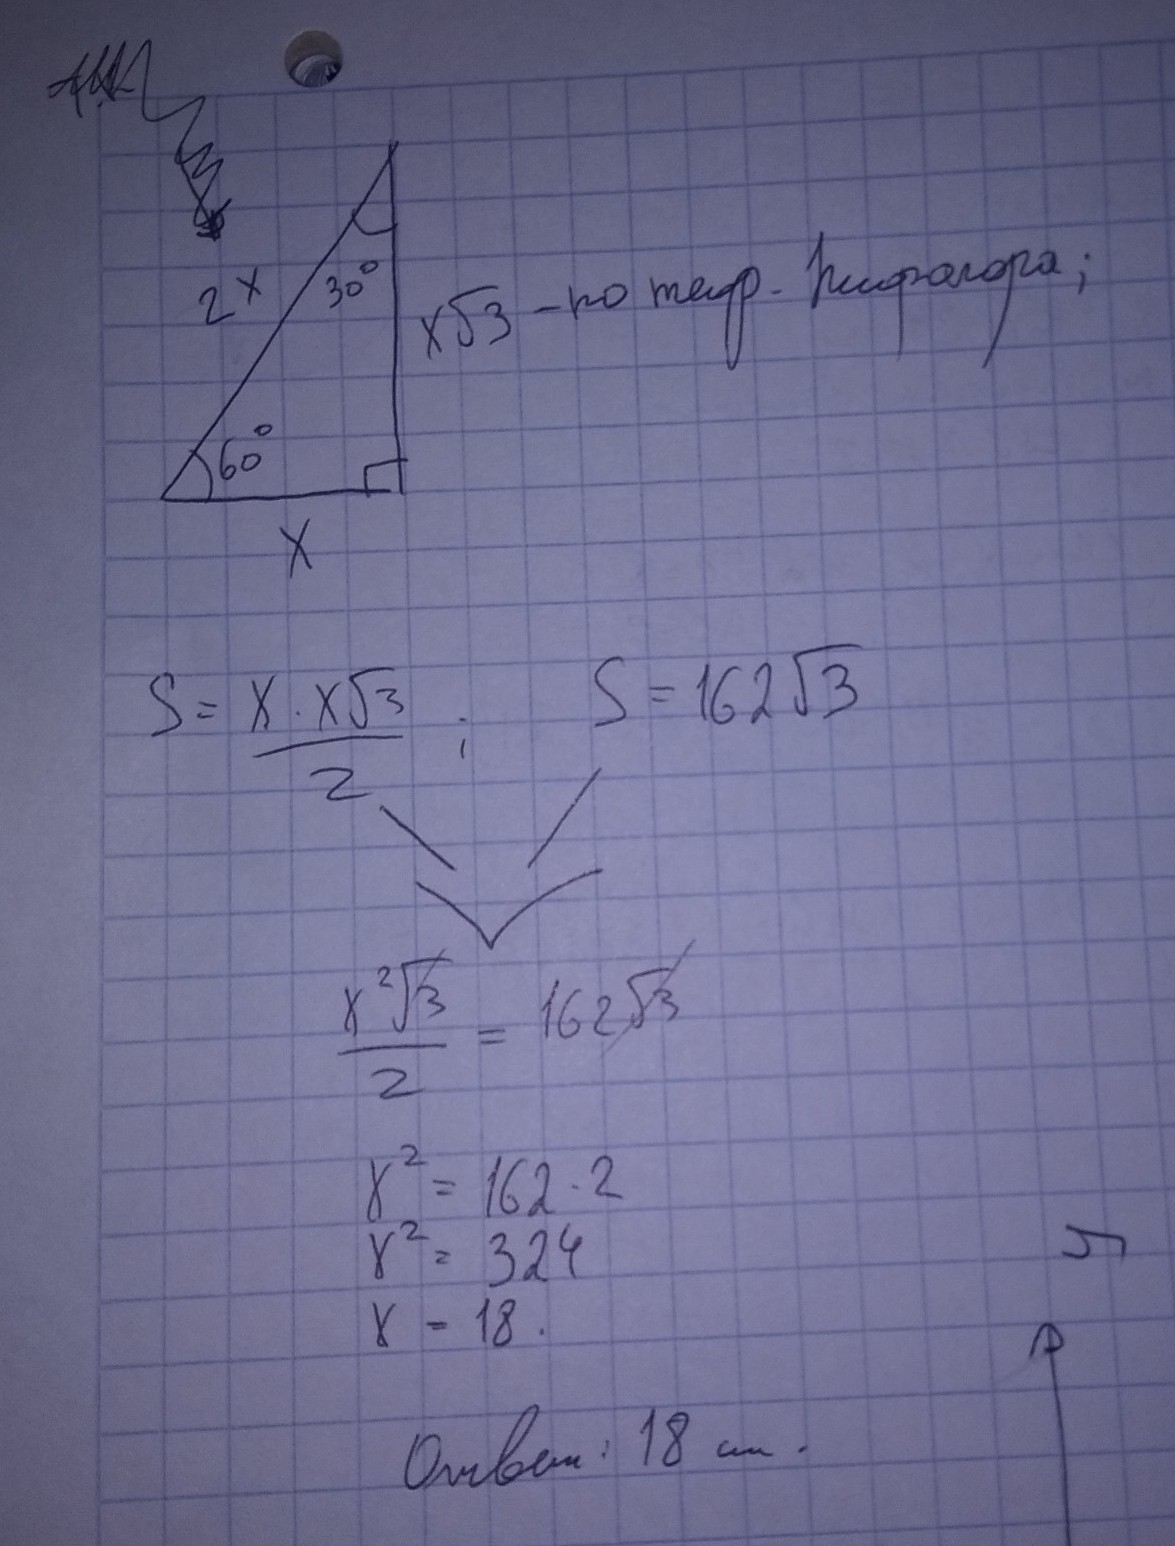 2x
30°
x√3 - по теор. Пифагора;
60°
x
S = x · x√3 / 2 ; S = 162√3
x²√3 / 2 = 162√3
x² = 162 · 2
x² = 324
x = 18.
Ответ: 18 см.